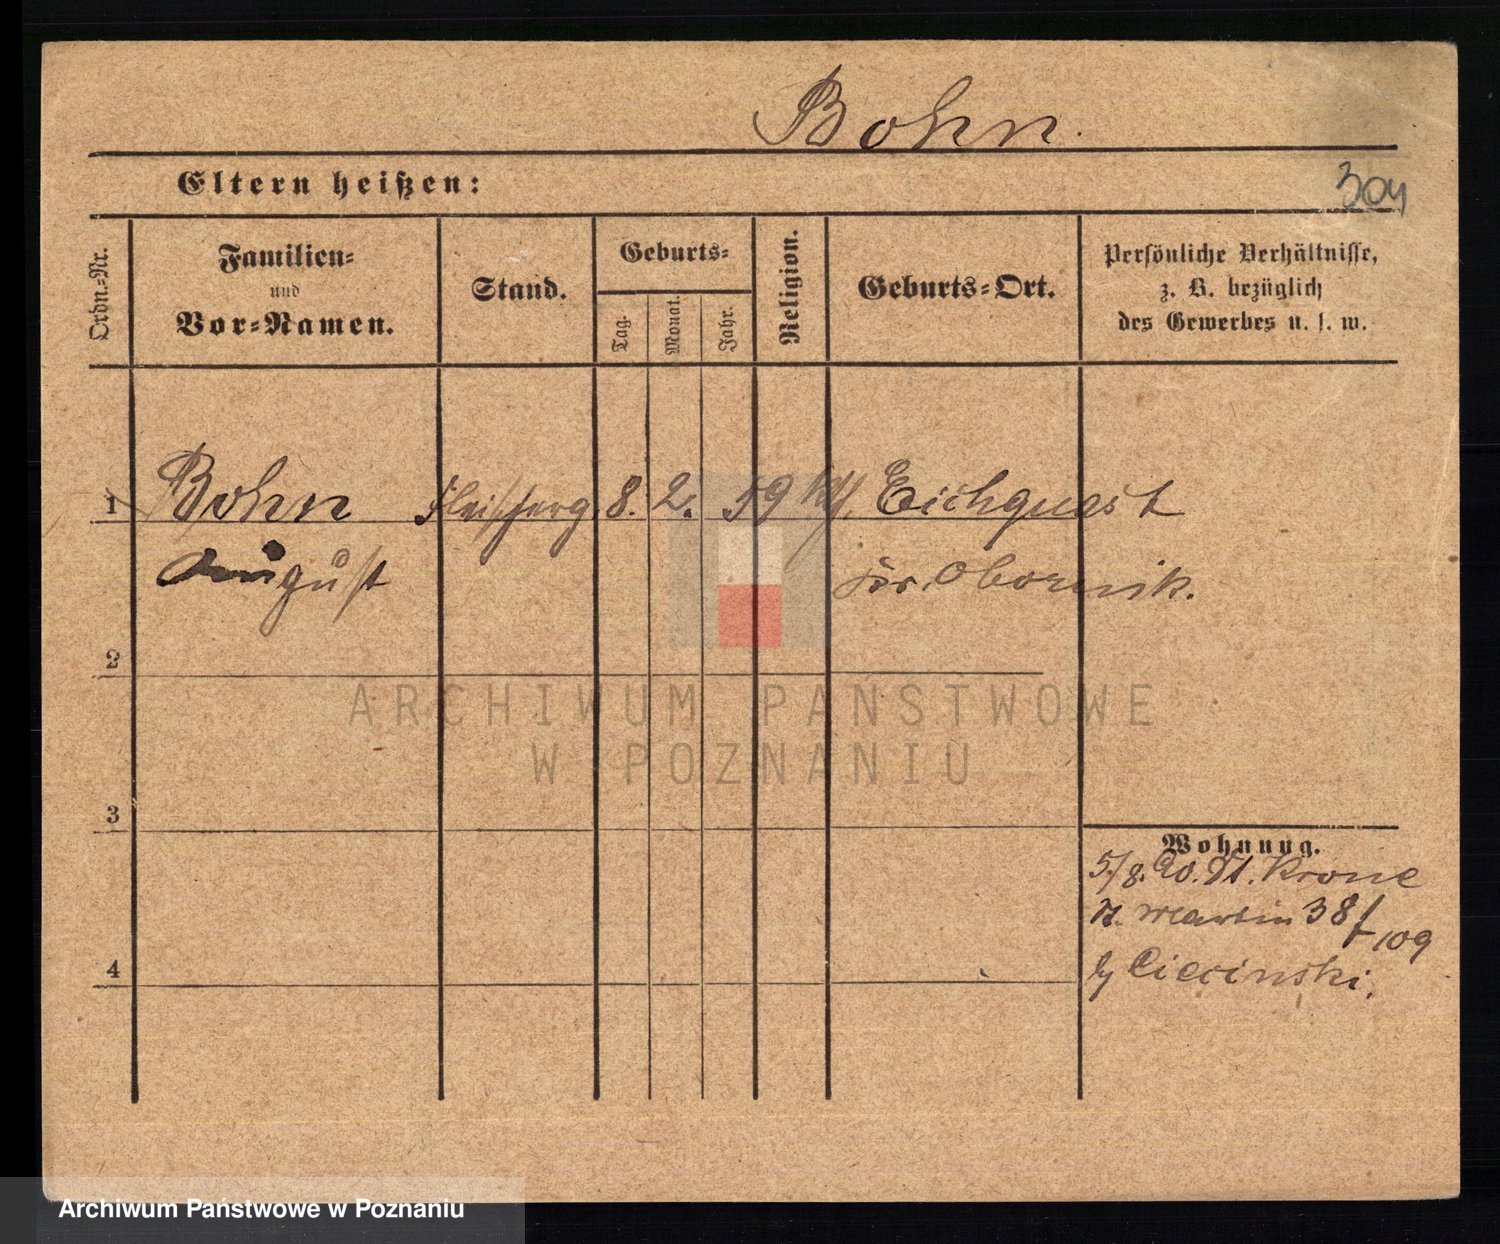 Bohn.
Eltern heißen:
304
Ordn.-Nr.
Familien-
und
Vor-Namen.
Stand.
Geburts-
Tag.
Monat.
Jahr.
Religion.
Geburts-Ort.
Persönliche Verhältnisse,
z. B. bezüglich
des Gewerbes u. s. w.
1 Bohn Fleischerg. 8. 2. 59 Eichquast
August Kr. Obornik.
2
ARCHIWUM PAŃSTWOWE
W POZNANIU
3
Wohnung.
5/8. 90. Dt. Krone
St. Martin 38
109
b/ Ciecinski.
4
Archiwum Państwowe w Poznaniu